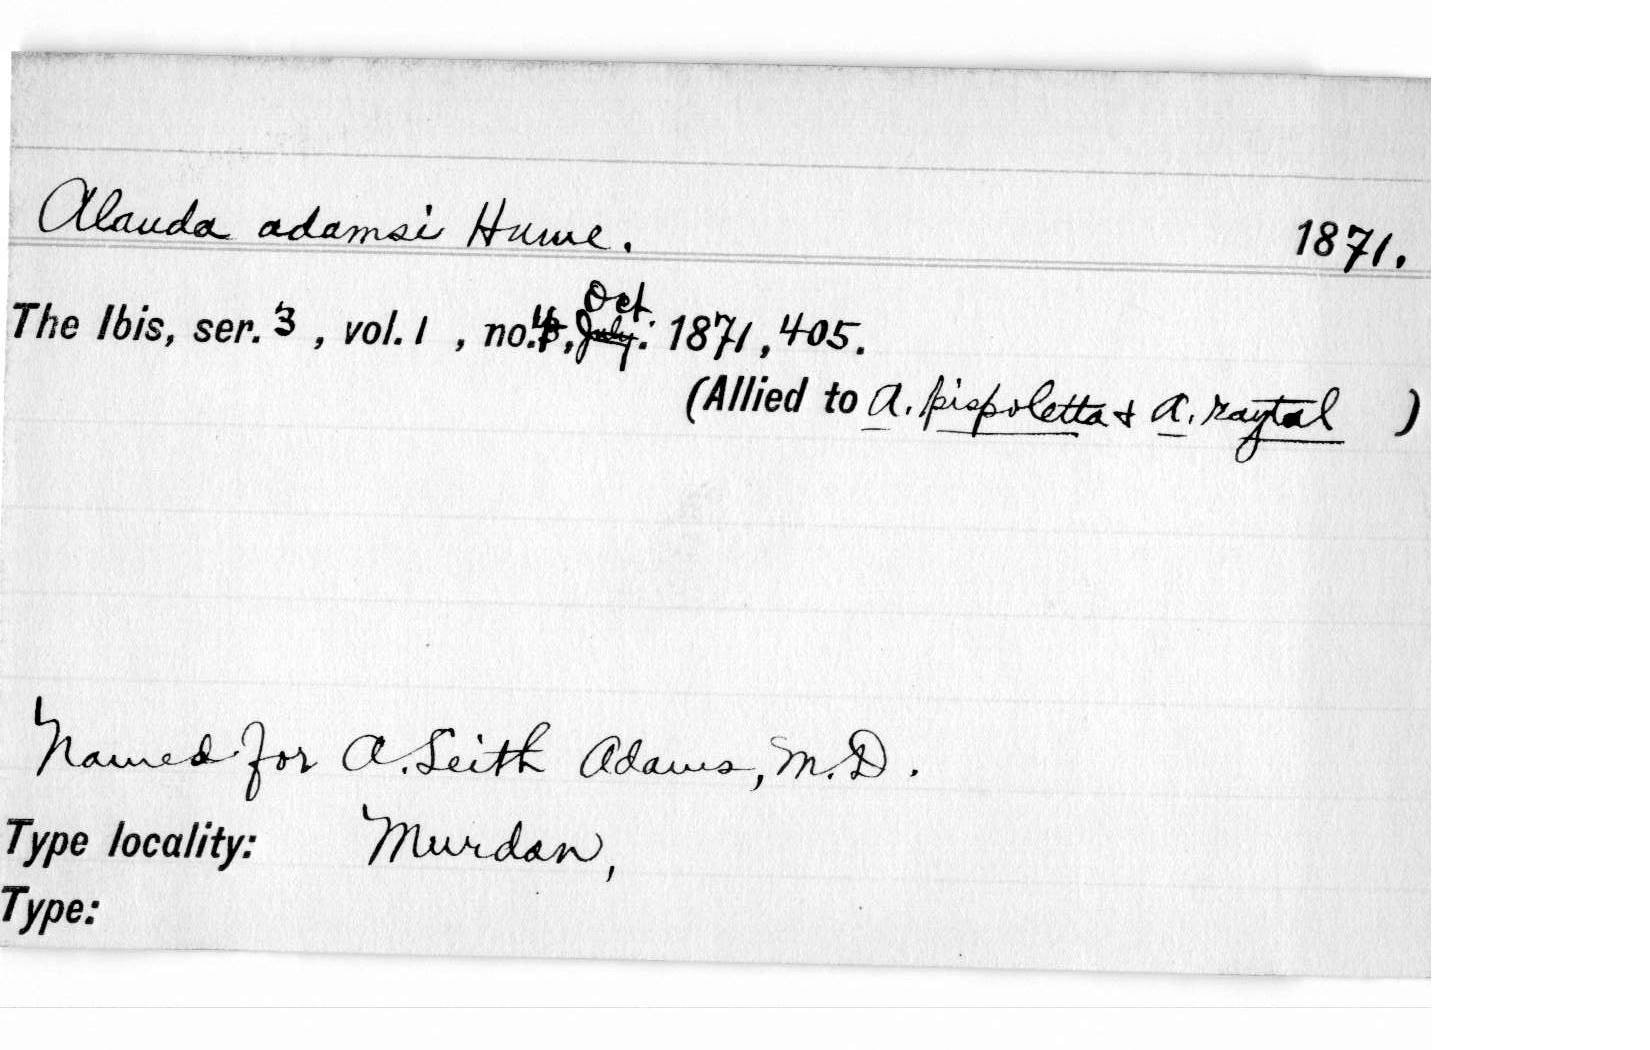 Alauda adamsi Hume. 1871.
The Ibis, ser. 3 , vol. 1 , no. 4, Oct. 1871, 405.
(Allied to A. pispoletta & A. raytal )
Named for A. Leith Adams, M.D.
Type locality: Murdan,
Type: